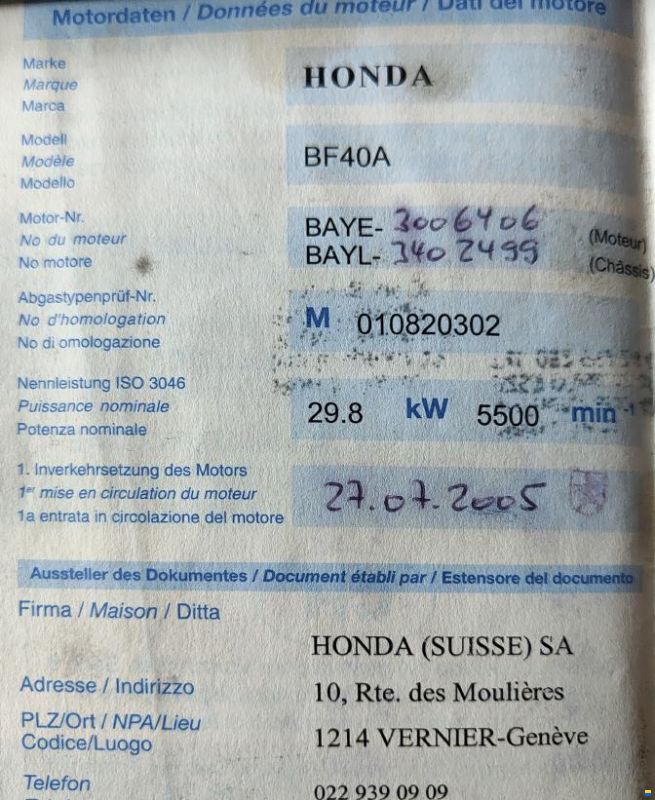 Motordaten / Données du moteur / Dati del motore
Marke
Marque
Marca
HONDA
Modell
Modèle
Modello
BF40A
Motor-Nr.
No du moteur
No motore
BAYE- 3006406 (Moteur)
BAYL- 3402499 (Châssis)
Abgastypenprüf-Nr.
No d'homologation
No di omologazione
M 010820302
Nennleistung ISO 3046
Puissance nominale
Potenza nominale
29.8 kW 5500 min -1
1. Inverkehrsetzung des Motors
1er mise en circulation du moteur
1a entrata in circolazione del motore
27.07.2005
Aussteller des Dokumentes / Document établi par / Estensore del documento
Firma / Maison / Ditta
HONDA (SUISSE) SA
Adresse / Indirizzo
10, Rte. des Moulières
PLZ/Ort / NPA/Lieu
Codice/Luogo
1214 VERNIER-Genève
Telefon
022 939 09 09